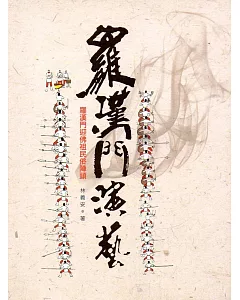 羅漢門演藝
羅漢門迎佛祖民俗陣頭
林義安 * 著